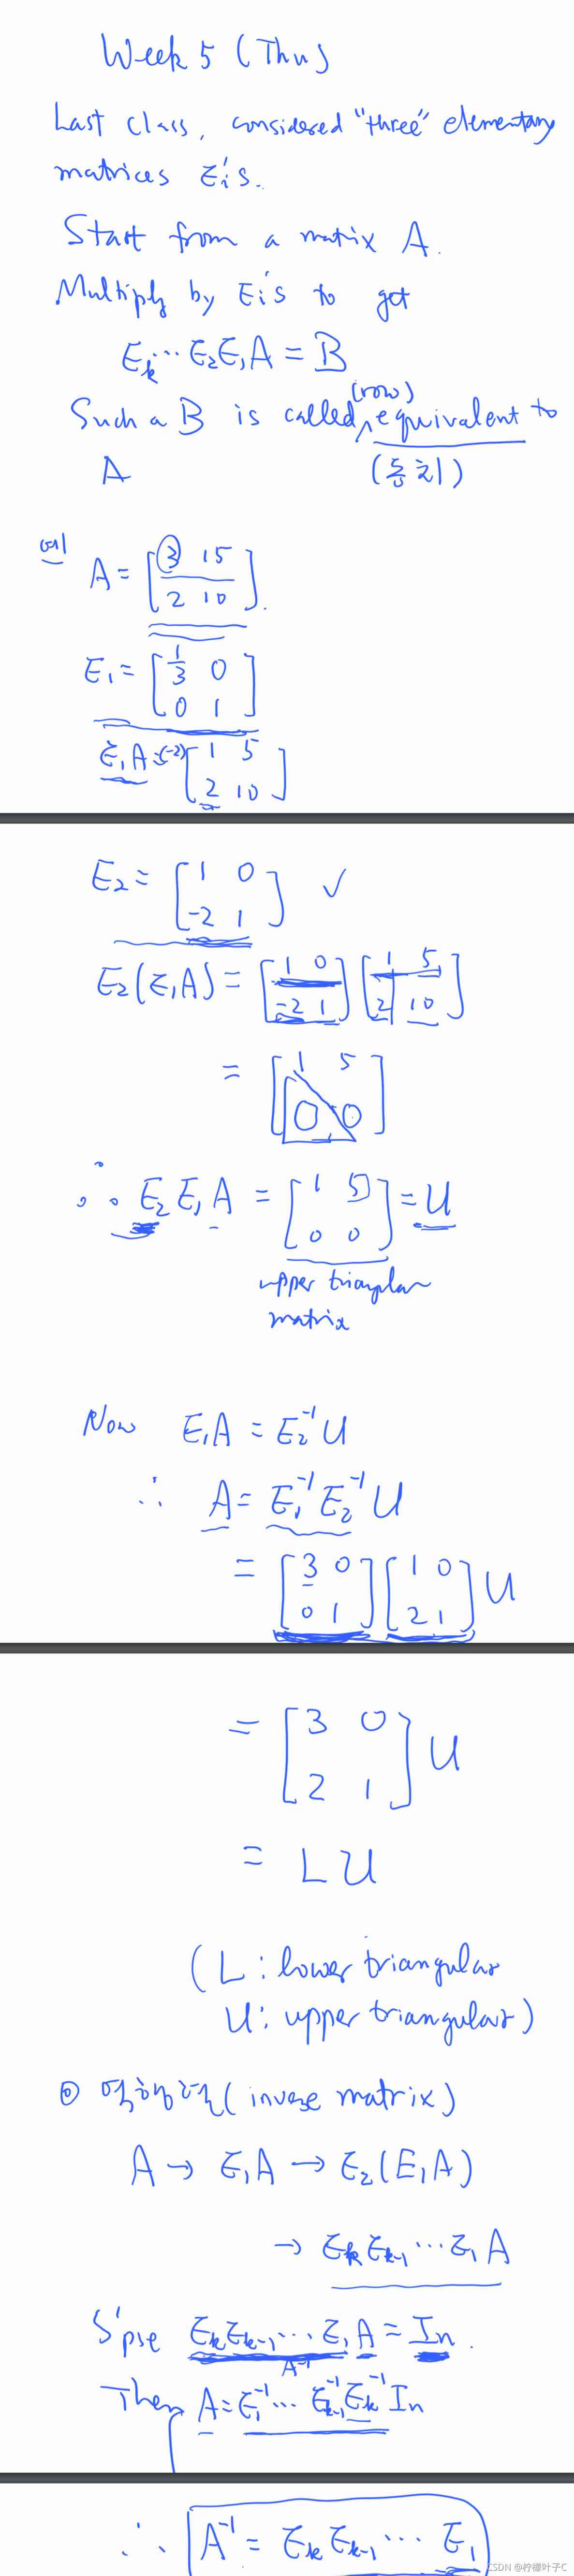 Week 5 (Thu)
Last class, considered "three" elementary
matrices Ei's.
Start from a matrix A.
Multiply by Ei's to get
Ek ... E2 E1 A = B
(row)
Such a B is called ∧ equivalent to
A (동치)
예) A = [3 15
2 10].
E1 = [1/3 0
0 1]
E1 A = (-2) [1 5
2 10]
E2 = [1 0
-2 1] ✓
E2(E1A) = [1 0
-2 1] [1 5
2 10]
= [1 5
0 0]
∴ E2 E1 A = [1 5
0 0] = U
upper triangular
matrix
Now E1A = E2⁻¹ U
∴ A = E1⁻¹ E2⁻¹ U
= [3 0
0 1] [1 0
2 1] U
= [3 0
2 1] U
= L U
( L : lower triangular
U : upper triangular )
⊙ 역행렬 ( inverse matrix )
A → E1A → E2(E1A)
→ Ek Ek-1 ... E1 A
S'pse Ek Ek-1 ... E1 A = In.
A⁻¹
Then A = E1⁻¹ ... Ek-1⁻¹ Ek⁻¹ In
∴ A⁻¹ = Ek Ek-1 ... E1
CSDN @柠檬叶子C